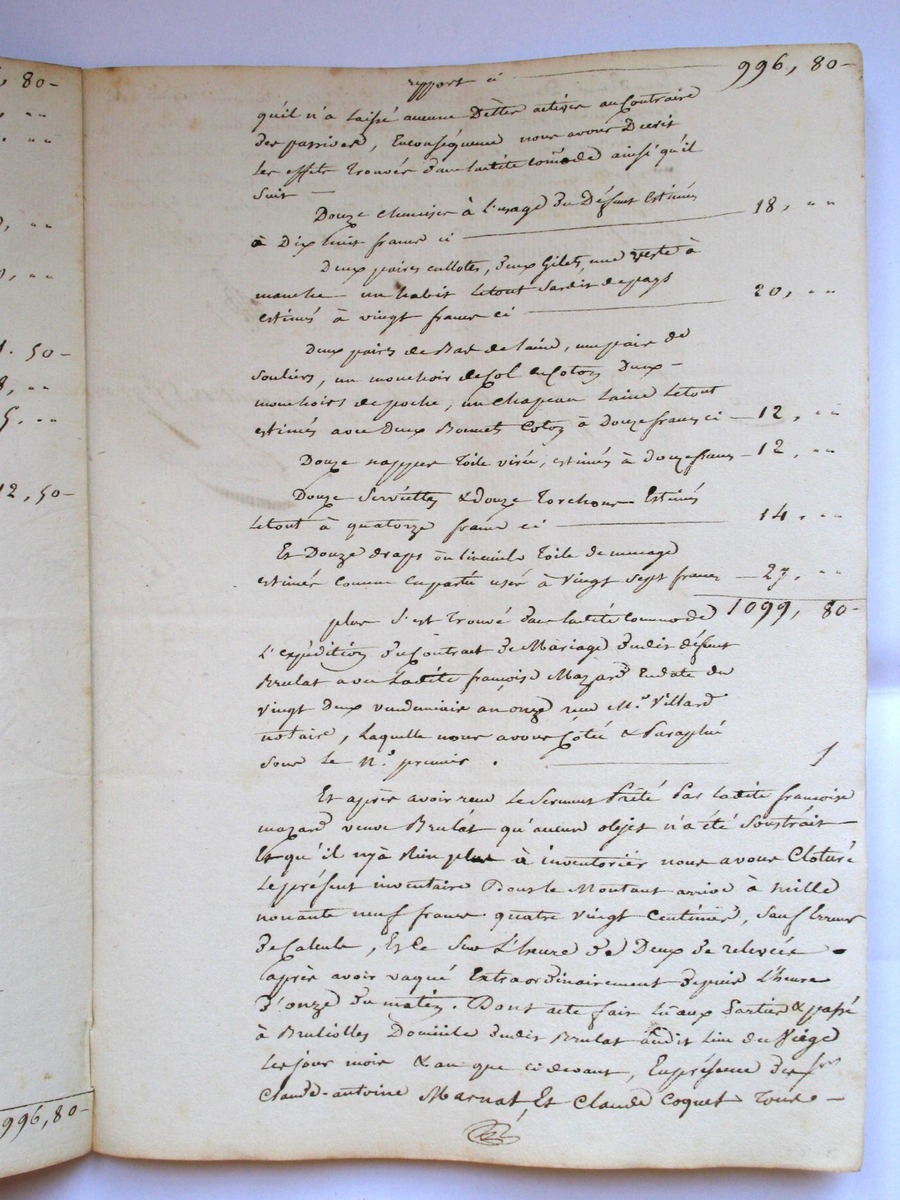 , 80-
" "
" "
, " "
, " "
1. 50-
8, " "
5. " "
12, 50-
996,80-
rapport ci 996, 80-
qu'il n'a laissé aucune Dettes actives au Contraire
des passives, Enconséquence nous avons Décrit
les effets trouvés dans laditte comode ainsi qu'il
suit
Douze chemises à l'usage du Défunt Estimés
à Dix huit francs ci 18, " "
Deux paires cullotes, deux Gilets, une veste à
manche un habit letout sardis de pays
estimés à vingt francs ci 20, " "
Deux paires de Bas de laine, un paire de
souliers, un mouchoir de Col en Coton Deux
mouchoirs de poche, un chapeau laine letout
estimés avec Deux Bonnets Coton à Douze francs ci 12, " "
Douze nappes toile estimés à douze francs 12, " "
Douze Serviettes & douze Torchons Estimés
letout à quatorze francs ci 14, " "
Et Douze draps ou linceuls toile de menage
estimés comme en partie usés à vingt sept francs 27, " "
1099, 80-
plus s'est trouvé dans laditte commode
l'expédition du Contract de Mariage dudit défunt
Brulat avec Laditte françoise Mazard Endate du
vingt deux vendemiaire an onze recu Me. Villard
notaire, laquelle nous avons Cotée & Paraphé
sous le No. premier. 1
Et après avoir recu le serment Prêté Par laditte françoise
mazard veuve Brulat qu'aucun objet n'a été soustrait
Et qu'il n'y à Rien plus à inventorier nous avons Cloturé
le présent inventaire Dont le Montant arrive à mille
nonante neuf francs quatre vingt Centimes, sauf Erreur
de Calcule, Et ce sur l'heure de Deux de relevée
après avoir vaqué Extraordinairement depuis l'heure
d'onze du matin. Dont acte fait lu aux Parties & passé
à Brullolles Domicile dudit Brulat audit lieu du Viège
les jour mois & an que ci devant, En présence de srs
Claude-antoine Marnat, Et Claude Coquet Tous